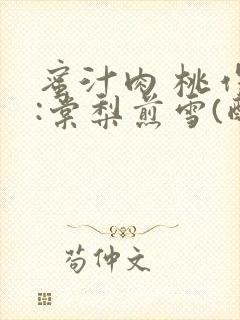 蜜汁肉桃 作
:棠梨煎雪(
苟仲文